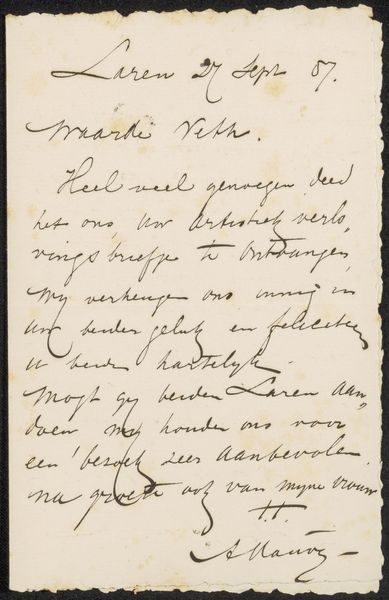 Laren 27 Sept 87.
Waarde Veth.
Heel veel genoegen deed
het ons, Uw artistiek verlo,
vings briefje te ontvangen,
Wy verheugen ons innig in
Uw beider geluk en feliciteren
U beiden hartelyk.
Mogt gy beiden Laren aan,
doen wy houden ons voor
een bezoek zeer aanbevolen
na groete ook van myne vrouw
t.t.
A Mauve